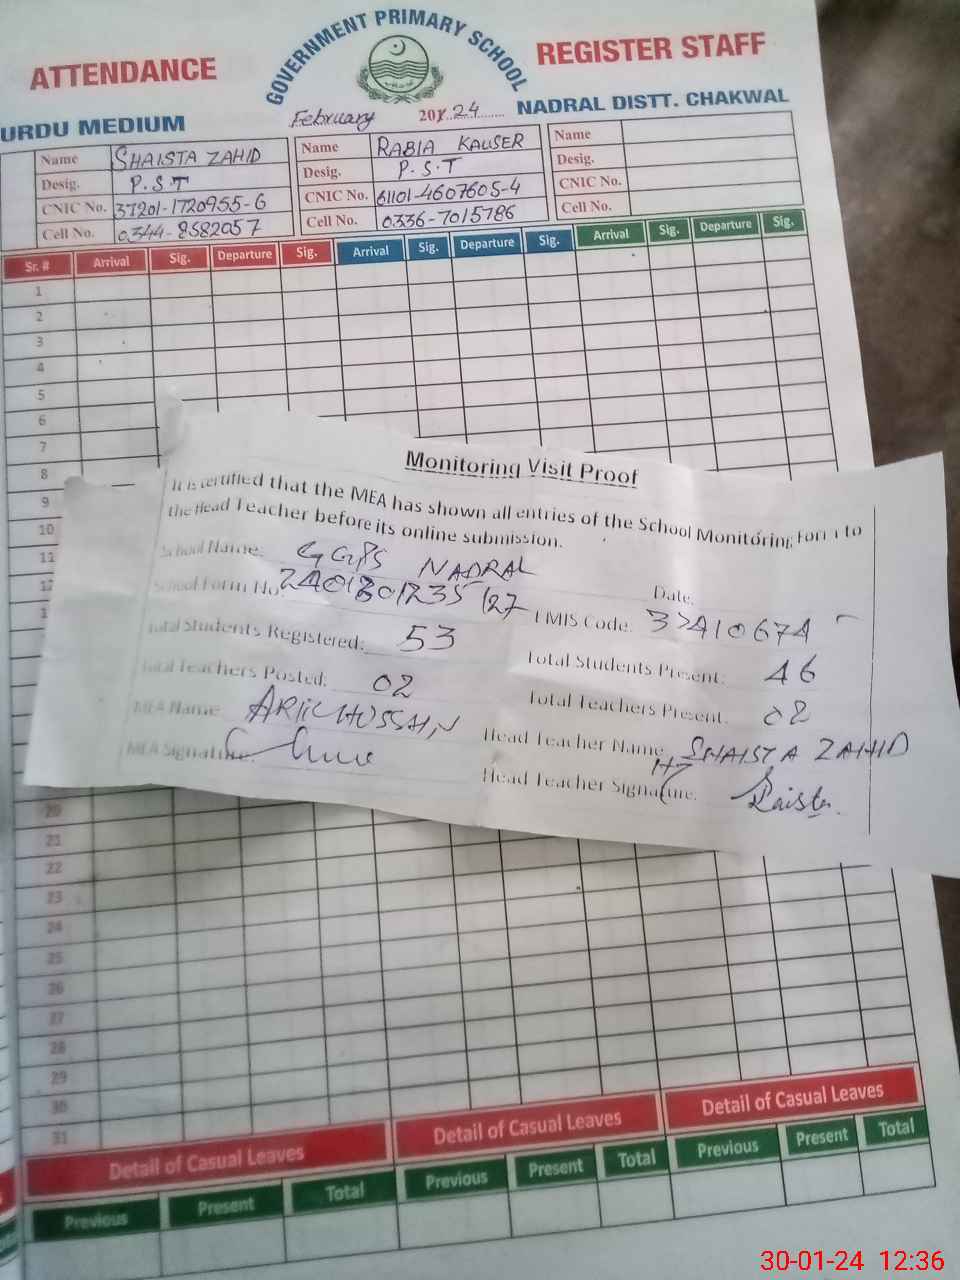 GOVERNMENT PRIMARY SCHOOL
ATTENDANCE
REGISTER STAFF
URDU MEDIUM
February 2024
NADRAL DISTT. CHAKWAL
Name SHAISTA ZAHID
Desig. P.S.T
CNIC No. 37201-1720955-6
Cell No. 0344-8582057
Name RABIA KAUSER
Desig. P.S.T
CNIC No. 61101-4607605-4
Cell No. 0336-7015786
Name
Desig.
CNIC No.
Cell No.
Sr. # Arrival Sig. Departure Sig. Arrival Sig. Departure Sig. Arrival Sig. Departure Sig.
1
2
3
4
5
6
7
8
9
10
11
12
1
Monitoring Visit Proof
It is certified that the MEA has shown all entries of the School Monitoring Form to
the Head Teacher before its online submission.
School Name: GGPS NADRAL
Date.
School Form No.
EMIS Code.
Total Students Registered: 53
Total Students Present: 46
Total Teachers Posted: 02
Total Teachers Present. 02
MEA Name HUSSAIN
Head Teacher Name: SHAISTA ZAHID
MEA Signature.
Head Teacher Signature. Shaista
20
21
22
23
24
25
26
27
28
29
30
31
Detail of Casual Leaves Detail of Casual Leaves Detail of Casual Leaves
Previous Present Total Previous Present Total Previous Present Total
30-01-24 12:36